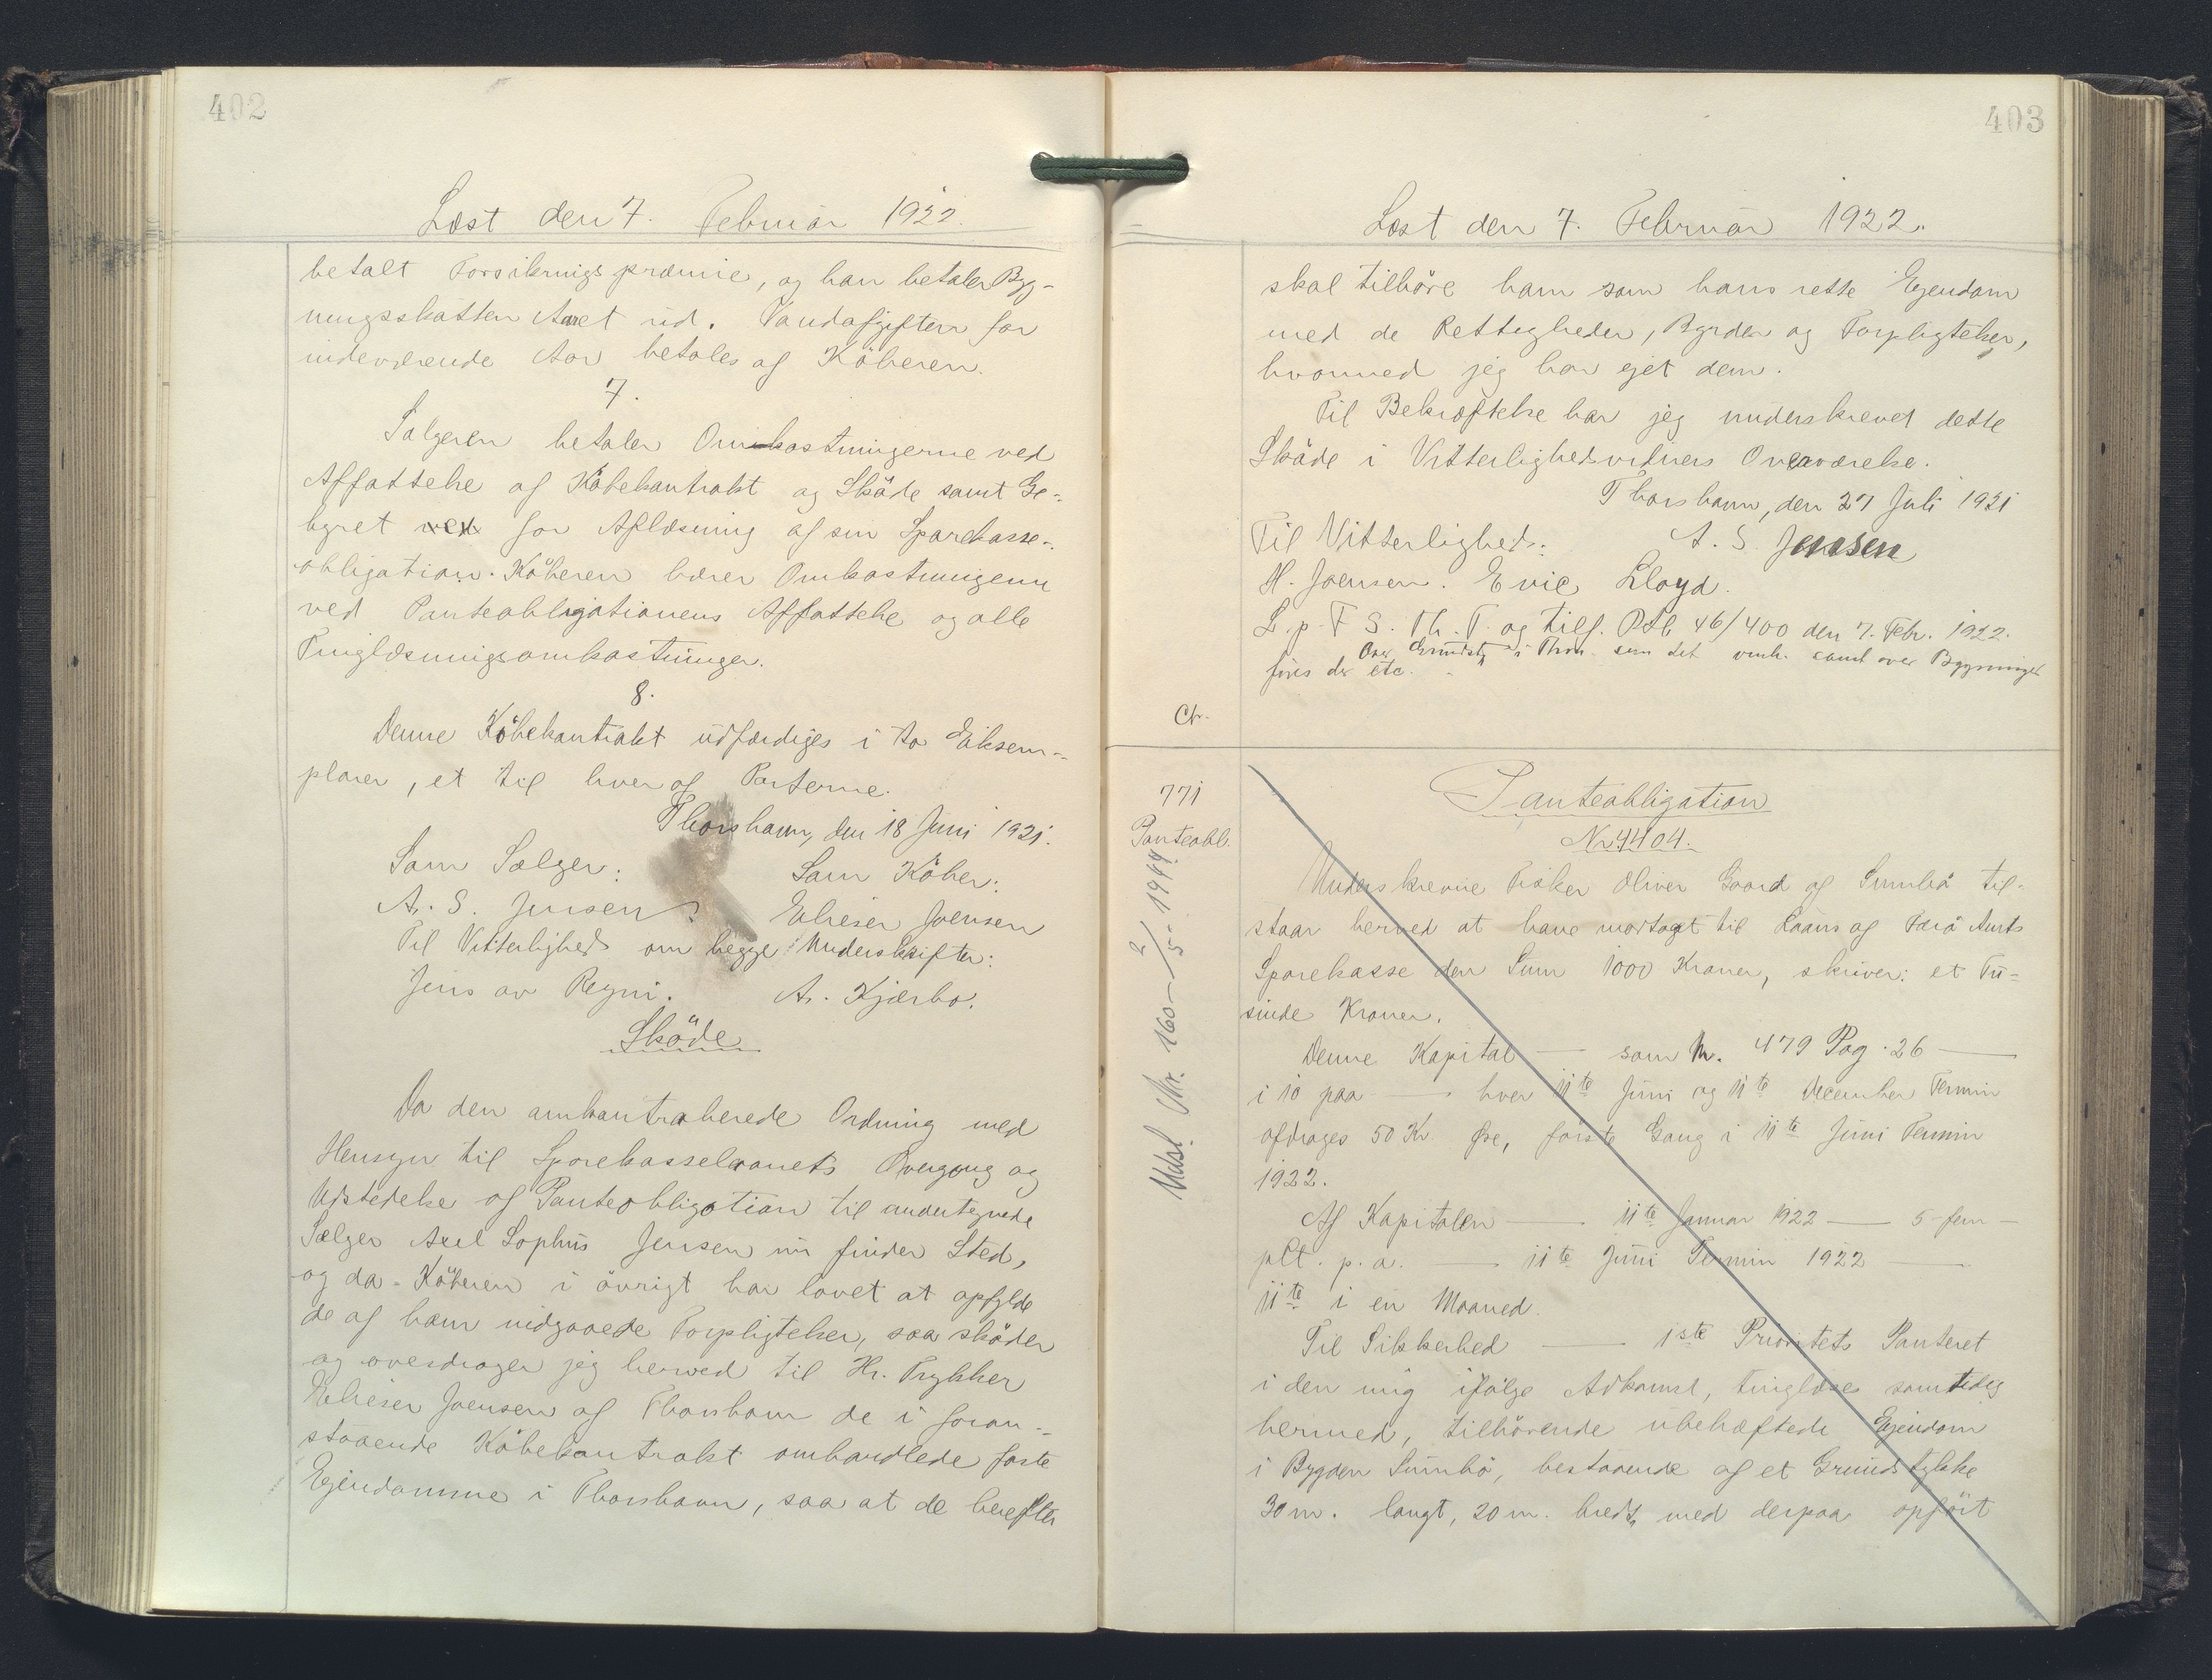 402
Læst den 7. Februar 1922.
betalt Forsikringspræmie, og han betaler Byg-
ningsskatten Aaret ud. Vandafgiften for
indeværende Aar betales af Köberen.
7.
Sælgeren betaler Omkostningerne ved
Affattelse af Köbekontrakt og Sköde samt Ge-
byret ved for Aflæsning af sin Sparekasse-
obligation. Köberen bærer Omkostningerne
ved Panteobligationens Affattelse og alle
Tinglæsningsomkostninger.
8.
Denne Köbekontrakt udfærdiges i to Eksem-
plarer, et til hver af Parterne.
Thorshavn, den 18 Juni 1921.
Som Sælger: Som Köber:
A. S. Jensen Elieser Joensen
Til Vitterlighed om begge Underskrifter:
Jens av Reyni. A. Kjærbo.
Sköde
Da den omkontraherede Ordning med
Hensyn til Sparekasselaanets Overgang og
Udstedelse af Panteobligation til undertegnede
Sælger Axel Sophus Jensen nu finder Sted,
og da Köberen i övrigt har lovet at opfylde
de af ham indgaaede Forpligtelser, saa sköder
og overdrager jeg herved til Hr. Trykker
Elieser Joensen af Thorshavn de i foran-
staaende Köbekontrakt omhandlede faste
Ejendomme i Thorshavn, saa at de herefter
403
Læst den 7. Februar 1922.
skal tilhöre ham som hans rette Ejendom
med de Rettigheder, Byrder og Forpligtelser,
hvormed jeg har ejet dem.
Til Bekræftelse har jeg underskrevet dette
Sköde i Vitterlighedsvidners Overværelse.
Thorshavn, den 27 Juli 1921
Til Vitterlighed: A. S. Jensen
H. Joensen. Evie Lloyd.
L. p. F S. Th. T. og tilf. Ptb. 46/400 den 7. Febr. 1922.
Over Grundst. i Thsh. som det omh. samt over Bygninger
föres der etc.
Ch.
771
Panteobl.
Udsl. Nr. 160 - 2/5 - 1944.
Panteobligation
Nr. 4404.
Underskrevne Fisker Oliver Gaard af Sumbö til-
staar herved at have modtaget til Laans af Færö Amts
Sparekasse den Sum 1000 Kroner, skriver: et Tu-
sinde Kroner.
Denne Kapital — som Nr. 479 Pag. 26 —
i 10 paa — hver 11te Juni og 11te December Termin
afdrages 50 Kr Öre, förste Gang i 11te Juni Termin
1922.
Af Kapitalen — 11te Januar 1922 — 5-fem —
pCt. p. a. — 11te Juni Termin 1922 —
11te i en Maaned.
Til Sikkerhed — 1ste Prioritets Panteret
i den mig ifölge Adkomst, tinglæse samtidig
hermed, tilhörende ubehæftede Ejendom
i Bygden Sumbö, bestaaende af et Grundstykke
30 m. langt, 20 m. bredt, med derpaa opfört